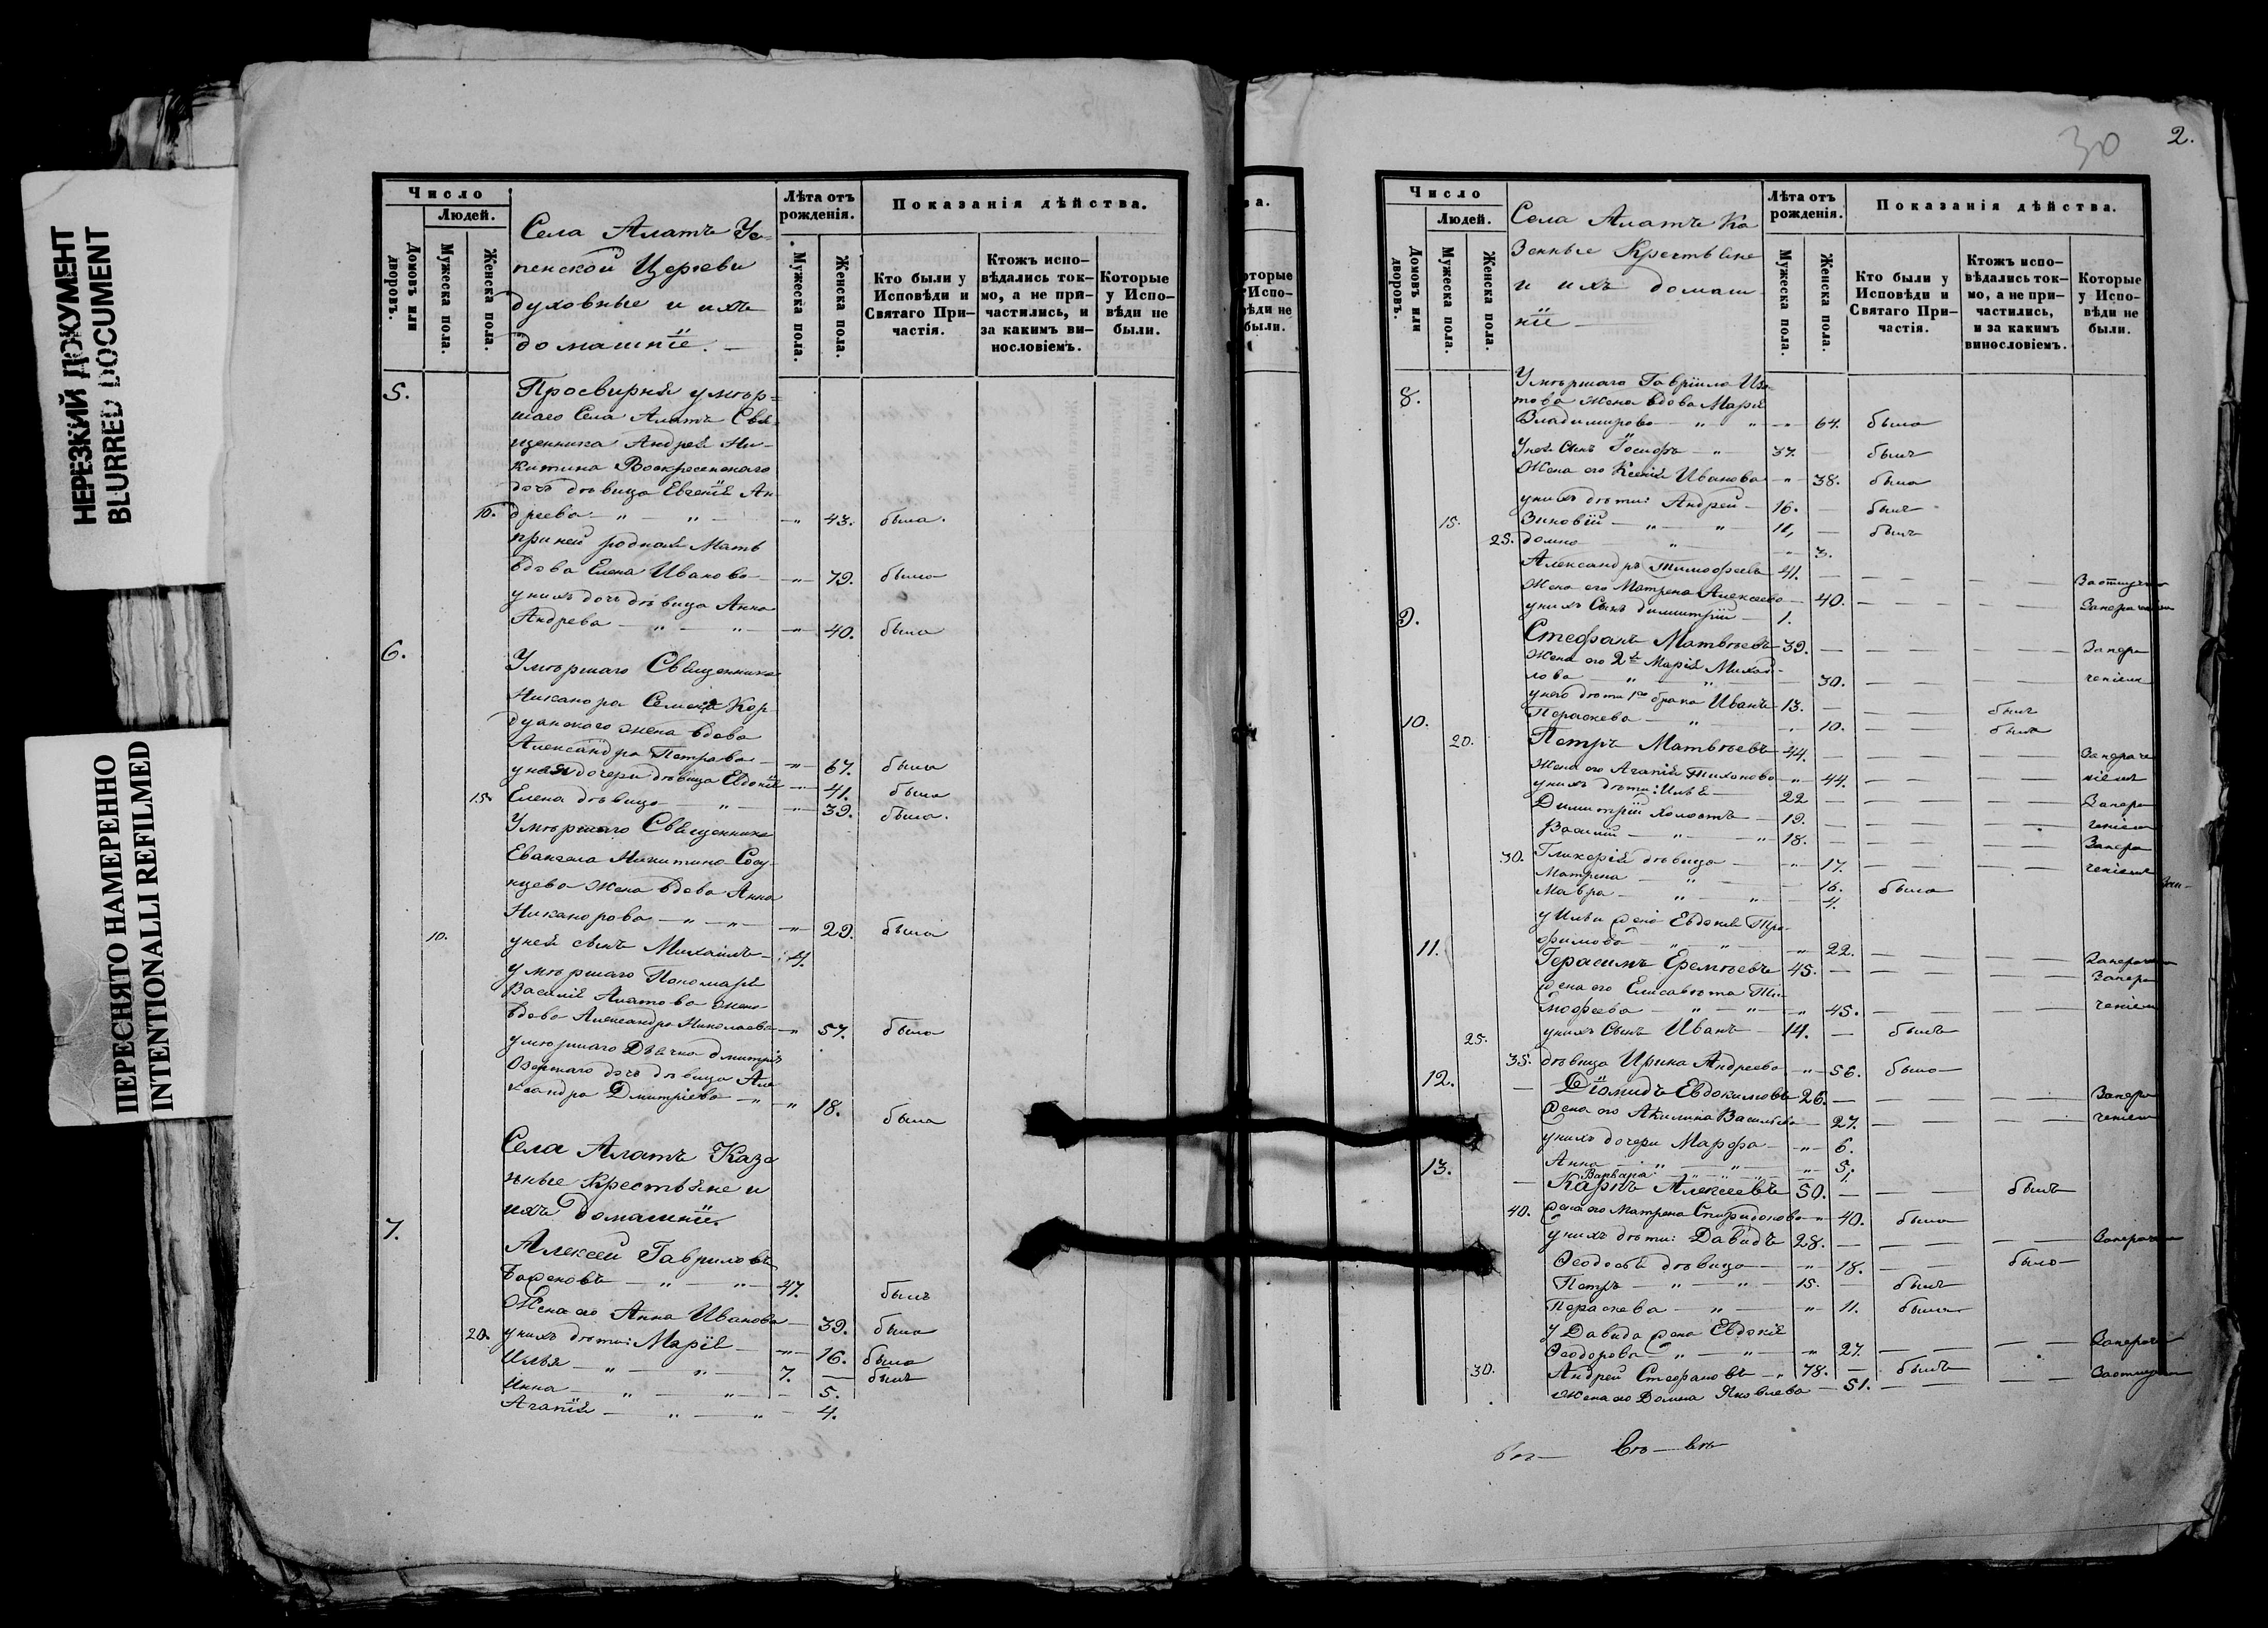 НЕРЕЗКИЙ ДОКУМЕНТ
BLURRED DOCUMENT
ПЕРЕСНЯТО НАМЕРЕННО
INTENTIONALLI REFILMED
Число
Людей.
Домовъ или дворовъ.
Мужеска пола.
Женска пола.
Села Алатъ Ус=
пенской Церкви
духовные и ихъ
домашніе.
Лѣта отъ рожденія.
Мужеска пола.
Женска пола.
Показанія дѣйства.
Кто были у Исповѣди и Святаго Причастія.
Ктожъ исповѣдались токмо, а не причастились, и за какимъ винословіемъ.
Которые у Исповѣди не были.
5. Просвирня умер=
шаго Села Алатъ Свя=
щенника Андрея Ни-
китина Воскресенскаго
дочь дѣвица Евгенія Ан
10. дреева — " — " — 43. была.
при ней родная Мать
вдова Елена Иванова — " — 79. была
у нихъ дочь дѣвица Анна
Андрева — " — " — 40. была
6. Умершаго Священника
Никанора Семена Кор
дуанского жена вдова
Александра Петрова — " — 67. была
у нея дочери дѣвица Евдокія — 41. была
15. Елена дѣвица — " — 39. была.
Умершаго Священника
Евангела Никитина Сосу-
нцева Жена вдова Анна
Никанорова — " — " — 29. была
10. у ней сынъ Михаилъ — 4.
умершаго Пономаря
Василія Алатова жена
вдова Александра Николаева — " 57. была
умершаго Дьячка Дмитрія
дочь дѣвица Але
ксандра Дмитріева — " — " 18. была
Села Алатъ Казе
нные Крестьяне и
ихъ домашніе.
7. Алексей Гавриловъ
Баженовъ — " — " — 47. былъ
Жена его Анна Иванова — 39. была
20. у нихъ дѣти: Марія — " — 16. была
Илья — " — " — 7. — былъ
Инна — " — " — 5.
Агапія — " — " — 4.
30
2.
ва.
оторые
Испо-
вѣди не
были.
Число
Людей.
Домовъ или дворовъ.
Мужеска пола.
Женска пола.
Села Алатъ Ка
зенные Крестьяне
и ихъ домаш
ніе —
Лѣта отъ рожденія.
Мужеска пола.
Женска пола.
Показанія дѣйства.
Кто были у Исповѣди и Святаго Причастія.
Ктожъ исповѣдались токмо, а не причастились, и за какимъ винословіемъ.
Которые у Исповѣди не были.
8. Умершаго Гавріила Изо-
това жена вдова Марія
Владимирова — " — " — 64. была
У ней Сынъ Іосифъ — " — 37. — былъ
Жена его Ксенія Иванова — " — 38. была
у нихъ дѣти: Андрей — 16. — былъ
15. Зиновій — " — " 11, — былъ
25. домна — " — " — 3.
Александръ Тимофеевъ — 41. — — — Заотлуч
Жена его Матрена Алексеева — 40. — — — Запераченіем
у нихъ Сынъ димитрій — 1.
9. Стефанъ Матвѣевъ — 39. — — — Запера
Жена его 2я Марія Михай-
лова — " — " — 30. — — — ченіем
у него дѣти 1го брака Иванъ — 13. — — — былъ
Параскева — " — " 10. — — была
10. 20. Петръ Матвѣевъ — 44. — — — Запераче
Жена его Агапія Тихонова — " — 44. — — — ніемъ
у нихъ дѣти: Илья — 22 — — — Запера
Димитрій холостъ — 19. — — — ченіем
Василій — " — " 18. — — — Запера
30. Гликерія дѣвица — " — 17. — — — ченіем
Матрена — " — 16. была
Мавра — " — " — 4.
у Ильи жена Евдокія Тро
фимова — " — " — 22. — — — Запераченіем
11. Герасимъ Еремѣевъ — 45. — — — Запера
жена его Елисавета Ти-
мофеева — " — " — 45. — — — ченіем
25. у нихъ Сынъ Иванъ — 14. — былъ
35. дѣвица Ирина Андреева — " — 56. была
12. Діомидъ Евдокимовъ 26. — — — Запера
Жена его Акилина Васильева — 27. — — — ченіем
у нихъ дочери Марфа — " — 6.
Анна — " — " — 5.
Варвара — " — " — 1.
13. Карпъ Алексеевъ 50. — — — былъ
40. Жена его Матрена Спиридонова — " — 40. была
у нихъ дѣти: Давидъ 28. — — — Запераченіем
Ѳеодосья дѣвица — " — 18. — — была
Петръ — " — " — 15. — былъ
Параскева — " — " — 11. была
у Давида жена Евдокія
Ѳеодорова — " — " — 27. — — — Запераче
30. Андрей Стефановъ — " 78. — былъ
Жена его Домна Яковлева — 51. — — — Заотлуч